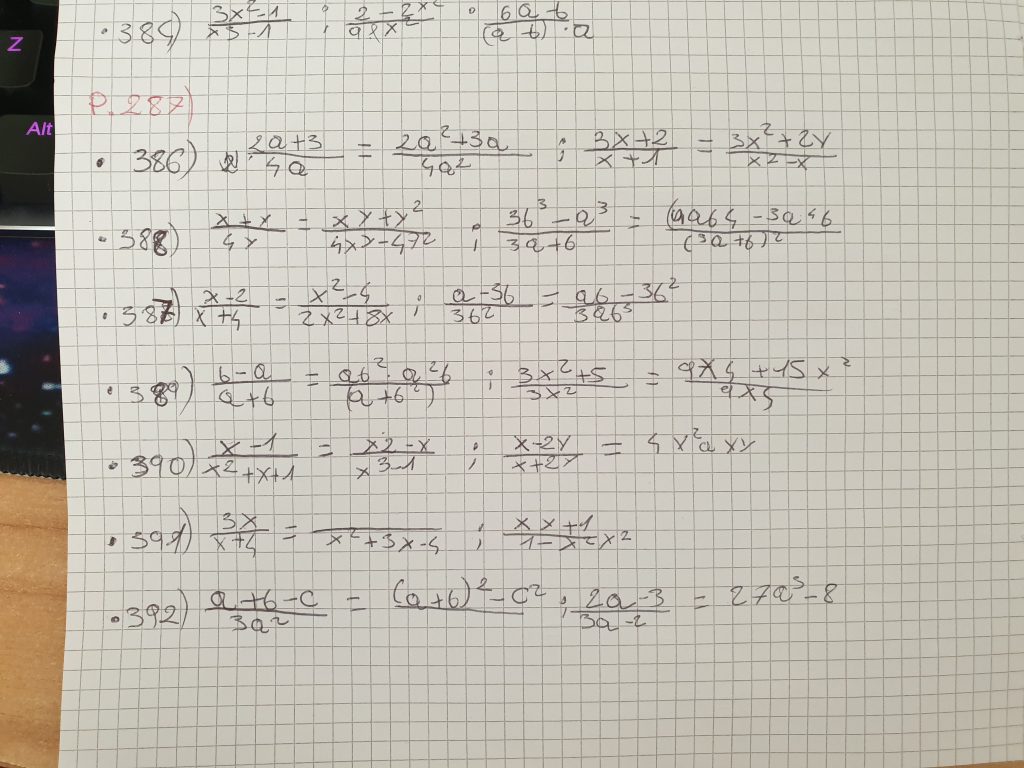 Z
Alt
.384) (3x²-1)/(x3-1) ; (2-2x²)/ : (6a-b)/((a-b)·a)
P.287)
. 386) (2a+3)/(4a) = (2a²+3a)/(4a²) ; (3x+2)/(x+1) = (3x²+2y)/(x2-x)
.388) (x+x)/(4y) = (xy+y²)/(4xy-472) ; (3b³-a³)/(3a+b) = /((3a+b)²)
.387) (x-2)/(x+4) = (x²-4)/(2x²+8x) ; (a-3b)/(3b²) = (ab-3b²)/(3ab³)
.389) (b-a)/(a+b) = (ab²-a²b)/((a+b²)) ; (3x²+5)/(3x²) = (9x4+15x²)/(9x5)
.390) (x-1)/(x²+x+1) = (x2-x)/(x3-1) ; (x-2y)/(x+2y) = 4x²a xy
.391) (3x)/(x+4) = /(x²+3x-4) ; (x x+1)/(1-x²x²)
.392) (a+b-c)/(3a²) = (a+b)²-c² ; (2a-3)/(3a-2) = 27a³-8